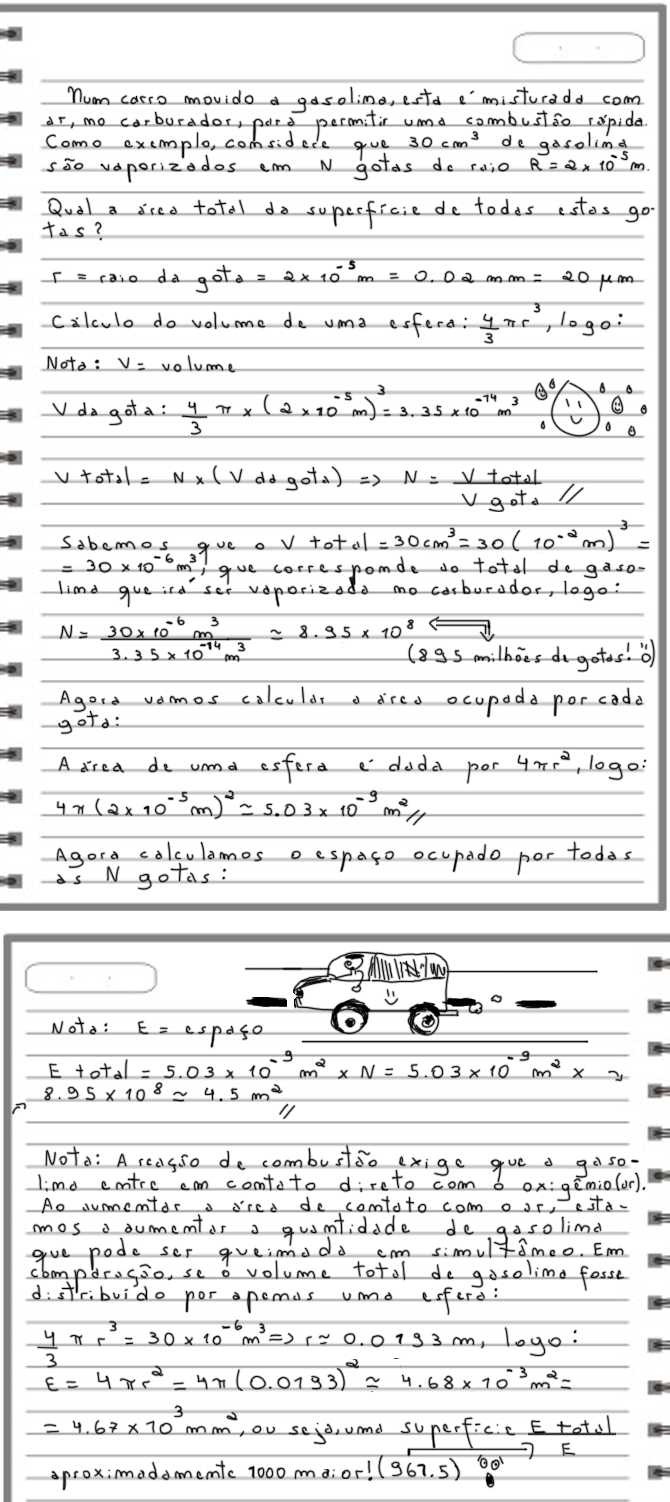 Num carro movido a gasolina, esta é misturada com
ar, no carburador, para permitir uma combustão rápida.
Como exemplo, considere que 30 cm³ de gasolina
são vaporizados em N gotas de raio R = 2 x 10⁻⁵ m.
Qual a área total da superfície de todas estas go-
tas?
r = raio da gota = 2 x 10⁻⁵ m = 0.02 mm = 20 μm
Cálculo do volume de uma esfera: 4/3 π r³, logo:
Nota: V = volume
V da gota: 4/3 π x (2 x 10⁻⁵ m)³ = 3.35 x 10⁻¹⁴ m³
V total = N x (V da gota) => N = V total / V gota //
Sabemos que o V total = 30 cm³ = 30 (10⁻² m)³ =
= 30 x 10⁻⁶ m³, que corresponde ao total de gaso-
lina que irá ser vaporizada no carburador, logo:
N = 30 x 10⁻⁶ m³ / 3.35 x 10⁻¹⁴ m³ ≃ 8.95 x 10⁸
(895 milhões de gotas! ö)
Agora vamos calcular a área ocupada por cada
gota:
A área de uma esfera é dada por 4πr², logo:
4π (2 x 10⁻⁵ m)² ≃ 5.03 x 10⁻⁹ m² //
Agora calculamos o espaço ocupado por todas
as N gotas:
Nota: E = espaço
E total = 5.03 x 10⁻⁹ m² x N = 5.03 x 10⁻⁹ m² x
8.95 x 10⁸ ≃ 4.5 m² //
Nota: A reação de combustão exige que a gaso-
lina entre em contato direto com o oxigênio (ar).
Ao aumentar a área de contato com o ar, esta-
mos a aumentar a quantidade de gasolina
que pode ser queimada em simultâneo. Em
comparação, se o volume total de gasolina fosse
distribuido por apenas uma esfera:
4/3 π r³ = 30 x 10⁻⁶ m³ => r ≃ 0.0193 m, logo:
E = 4πr² = 4π (0.0193)² ≃ 4.68 x 10⁻³ m² =
= 4.67 x 10³ mm², ou seja, uma superfície E total / E
aproximadamente 1000 maior! (961.5)